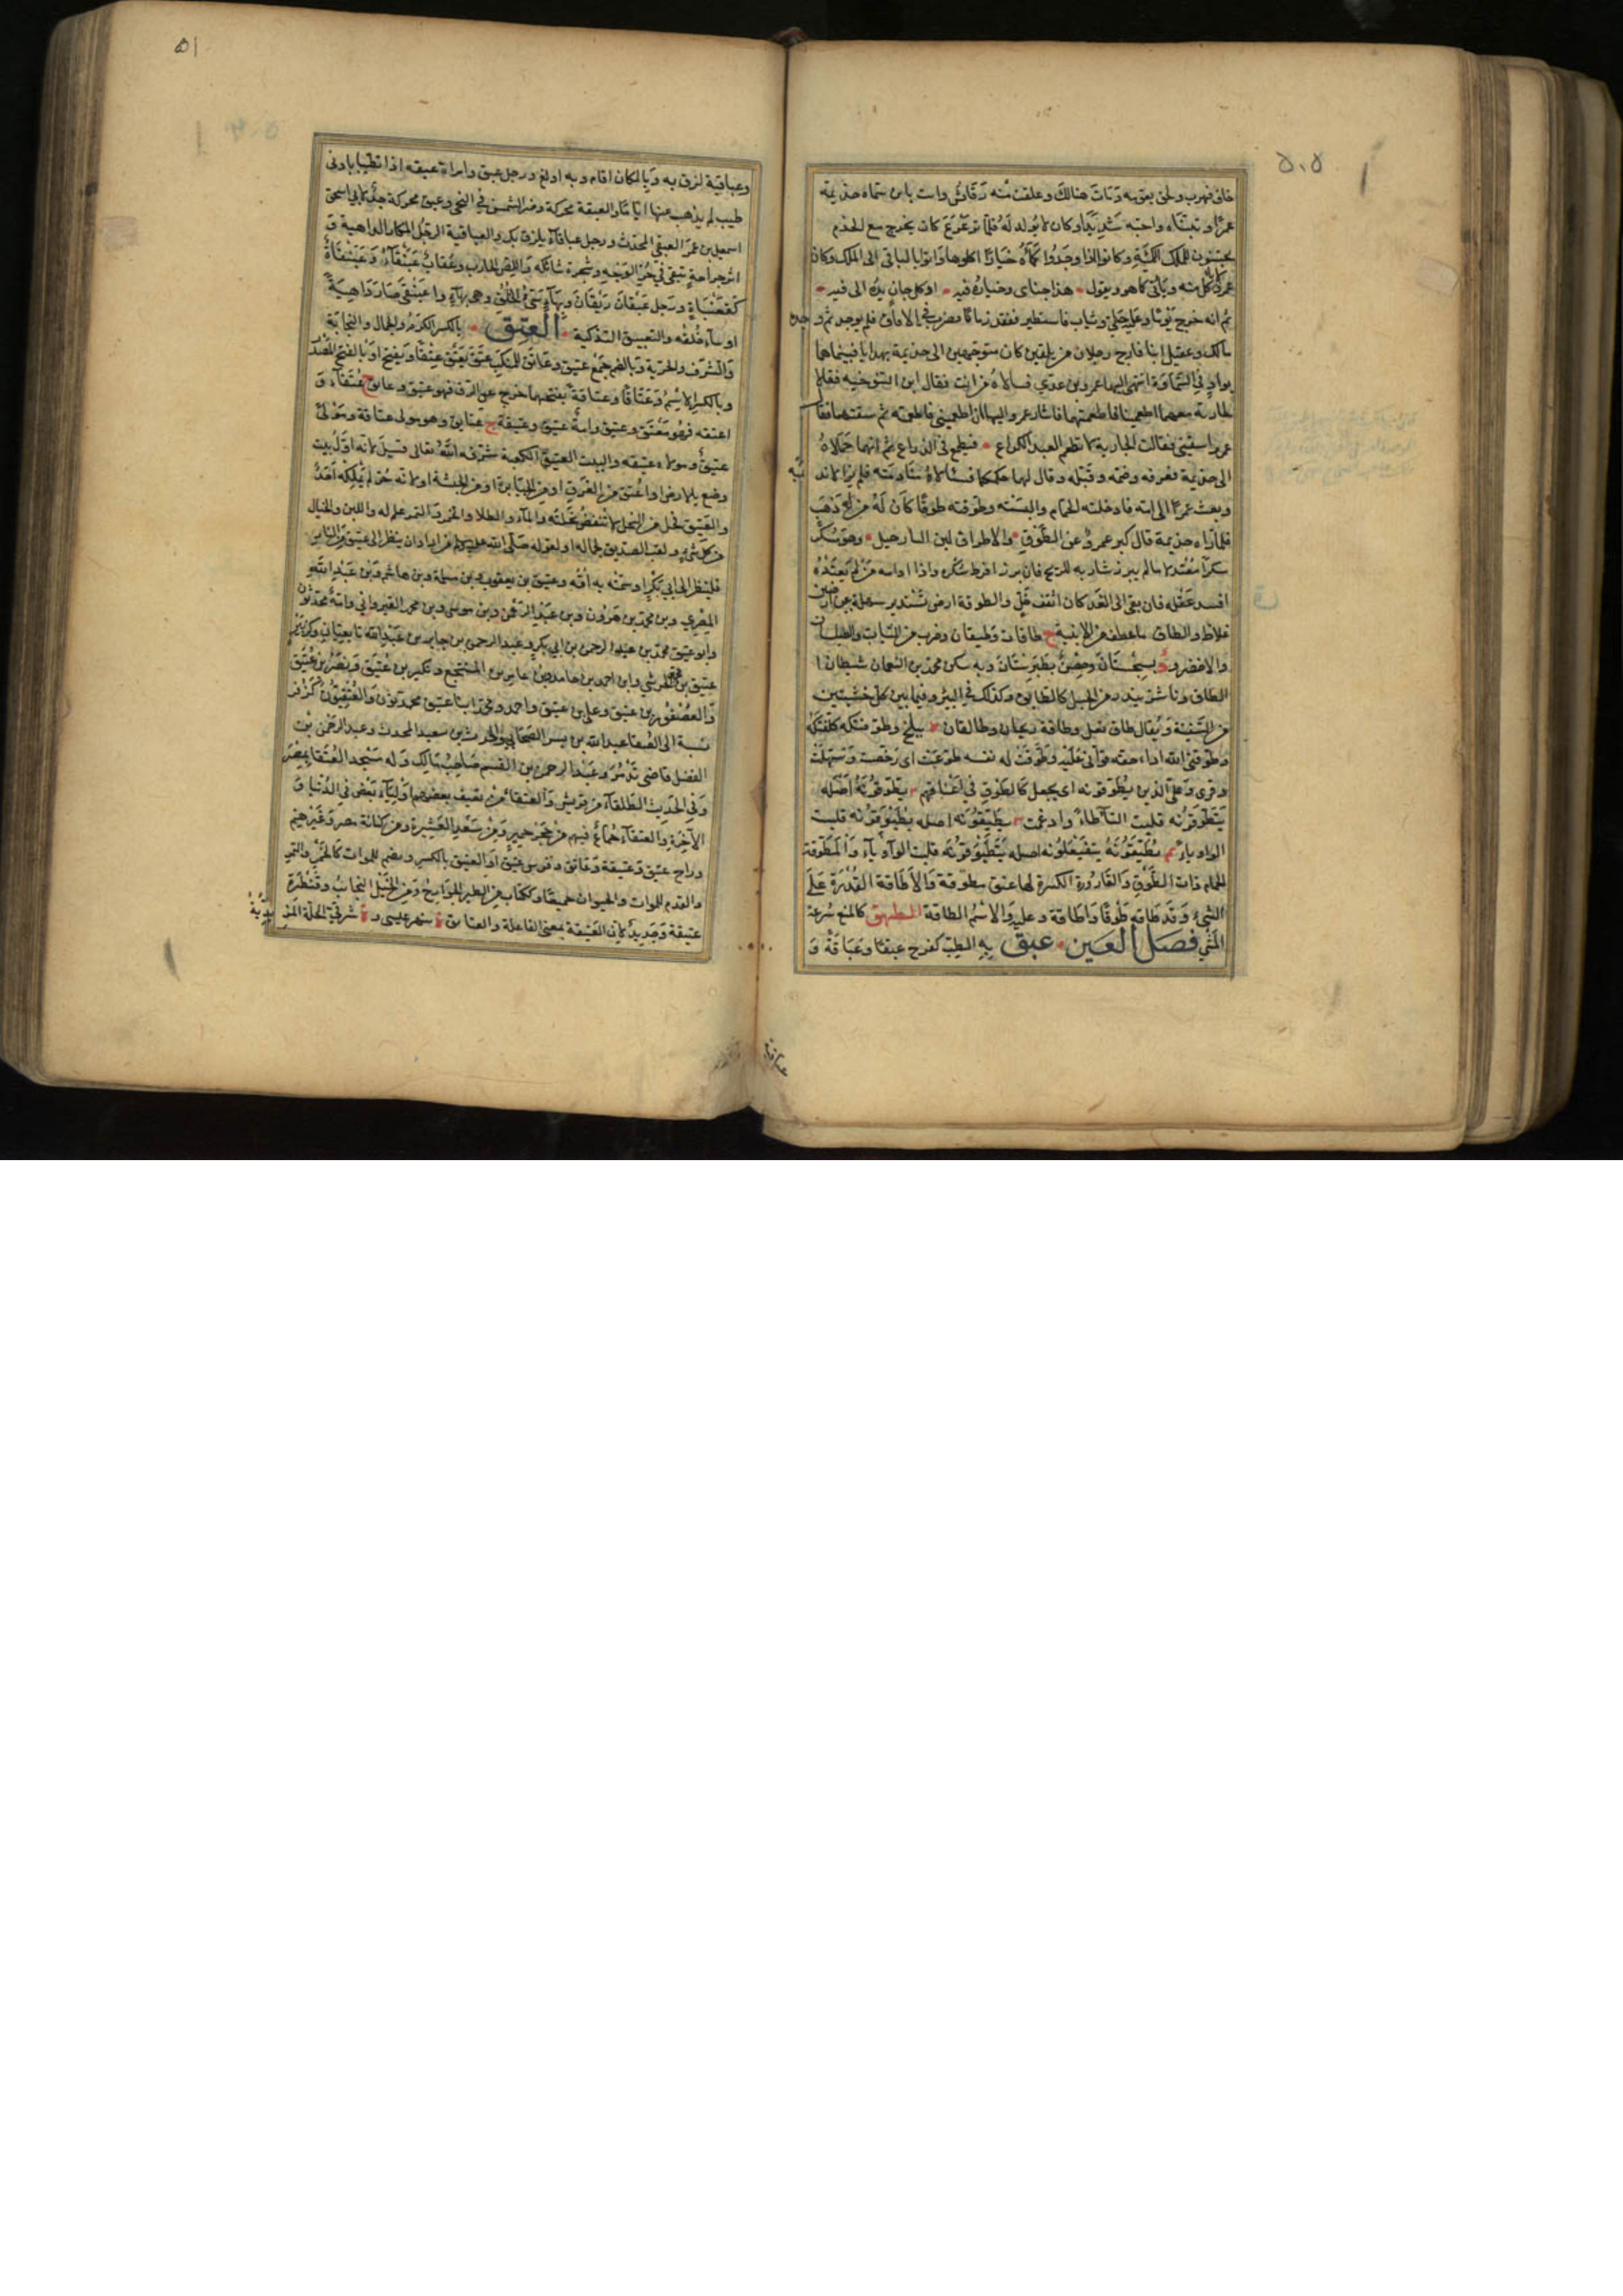 ۵۰۵
خاف فهرب ولحق بعق به وبات هنالك وعلقت منه رقاش وات بابن سماه جذيمة
عمرا وتبناه واحبه شديدا وكان لا يولد له فلما ترعرع كان يخرج مع الخدم
يجتنون للملك الكمأة وكانوا اذا وجدوا كمأة خيارا اكلوها واتوا بالباقي الى الملك وكان
عمرو لا ياكل منه وياتي كما هو ويقول هذا جناى وخياره فيه اذ كل جان يده الى فيه
ثم انه خرج يوما وعليه حلي وثياب فاستطير ففقد زمانا فضرب في الافاق فلم يوجد ثم وجده
مالك وعقيل ابنا فارج رجلان من بلقين كان متوجهين الى جذيمة بهدايا فبينماهما
بواد في السماوة انتهى اليهما عمرو بن عدي فسالاه من انت فقال ابن التنوخيه فقالا
لجارية معهما اطعمينا فاطعمتهما فاشار عمرو اليها ان اطعميني فاطعمته ثم سقتهما فقال
عمرو اسقيني فقالت الجارية لا تطعم العبد الكراع فيطمع في الذراع ثم انهما حملاه
الى جذيمة فعرفه وضمه وقبله وقال لهما حكمكما فسالاه منادمته فلم يزالا نديميه
وبعث عمرا الى امه فادخلته الحمام والبسته وطوقته طوقا كان له من ذهب
فلما راه جذيمة قال كبر عمرو عن الطوق والاطواق لبن النارجيل وهو مسكر
سكرا معتدلا ما لم يبرز شاربه للريح فان برز افرط سكره واذا ادامه من لم يعتده
افسد عقله فان بقى الى الغد كان اثقف خل والطوقة ارض تستدير سهلة بين ارضين
غلاظ والطاق ما عطف من الابنية ج طاقات وطيقان وضرب من الثياب والطيلسان
والاخضر و د بسجستان وحصن بطبرستان وبه سكن محمد بن النعمان شيطان ا
الطاق وناشز يندر من الجبل كالطائق وكذلك في البئر وفيما بين كل خشبتين
من السفينة ويقال طاق نعل وطاقة ريحان وطالقان ببلخ وطوقتكه كلفتكه
وطوقني الله اداء حقه قواني عليه وطوقت له نفسه طوعت اى رخصت وسهلت
وقرى وعلى الذين يطوقونه اى يجعل كالطوق في اعناقهم يطوقونه اصله
يتطوقونه قلبت التآ طاء وادغمت يطيقونه اصله يطيوقونه قلبت
الواو ياء يطيقونه يتفيعلونه اصله يتطيوقونه قلبت الواو ياء والمطوقة
الحمام ذات الطوق والقارورة الكبيرة لها عنق مطوقة والاطاقة القدرة على
الشىء وقد طاقه طوقا واطاقة وعليه والاسم الطاقة الطهق كالمنع سرعة
المشي فصل العين عبق به الطيب كفرح عبقا وعباقة و
عباقية
۵۱
وعباقية لزق به وبالمكان اقام وبه اولع ورجل عبق وامراة عبقه اذا تطيبا بادنى
طيب لم يذهب عنها اياما والعبقة محركة وضر السمن في النحى وعبق محركة جد لابي اسحق
اسمعيل بن عمر العبقي المحدث ورجل عباقاء يلزق بك والعباقية الرجل المكار الداهية و
اثر جراحة تبقى في حر الوجه وشجرة شائكه واللص الخارب وعقاب عبنقاء وعبنقاة
كقعنباة ورجل عبقان ربقان وبهاء سيء الخلق وهي بهاء واعبنقى صار داهية
او ساء خلقه والتعبيق التذكية العتق بالكسر الكرم والجمال والنجابة
والشرف والحرية وبالضم جمع عتيق وعاتق للمنكب عتق يعتق عتقا ويفتح او بالفتح المصدر
وبالكسر الاسم وعتاقا وعتاقة بفتحهما خرج عن الرق فهو عتيق وعاتق ج عتقاء و
اعتقه فهو معتق وعتيق وامة عتيق وعتيقة ج عتائق وهو مولى عتاقة ومولى
عتيق ومولاة عتيقه والبيت العتيق الكعبة شرفه الله تعالى قيل لانه اول بيت
وضع بالارض او اعتق من الغرق او من الجبابرة او من الحبشة او لانه حر لم يملكه احد
والعتيق فحل من النخل لا تنفض نخلته والماء والطلا والخمر والتمر علم له واللبن والخيار
من كل شيء ولقب الصديق لجماله او لقوله صلى الله عليه من اراد ان ينظر الى عتيق من النار
فلينظر الى ابي بكر او سمته به امه وعتيق بن يعقوب وبن سلمة وبن هاشم وبن عبد الله
المصري وبن محمد بن هرون وبن عبد الرحمن وبن موسى وبن محمد القيرواني وامة محدثون
وابو عتيق محمد بن عبد الرحمن بن ابي بكر وعبد الرحمن بن جابر بن عبد الله تابعيان وكزبير
عتيق بن محمد الحرشي وابن احمد بن حامد وبن عامر بن المنتجع وبكير بن عتيق ونصر بن عتيق
والعصفور بن عتيق وعلي بن عتيق واحمد ومحمد ابنا عتيق محدثون والعتقيون كزفر
نسبة الى العتقا عبد الله بن بسر الصحابي والحرث بن سعيد المحدث وعبد الرحمن بن
الفضل قاضي تدمر وعبد الرحمن بن القسم صاحب مالك وله مسجد العتقا بمصر
وفي الحديث الطلقاء من قريش والعتقاء من ثقيف بعضهم اولياء بعض في الدنيا و
الآخرة والعتقاء جماع فيهم من حجر حمير ومن سعد العشيرة ومن كنانة مضر وغيرهم
وراح عتيق وعتيقة وعاتق وقوس عتيق او العتيق بالكسر وبضم للموات كالخمر والتمر
والقدم للموات والحيوان جميعا وككتاب من الطير الجوارح ومن الخيل النجائب وقنطرة
عتيقة وجديد لان العتيقة بمعنى الفاعلة والعتائق ة بنهر عيسى و ة شرقي الحلة المزيدية